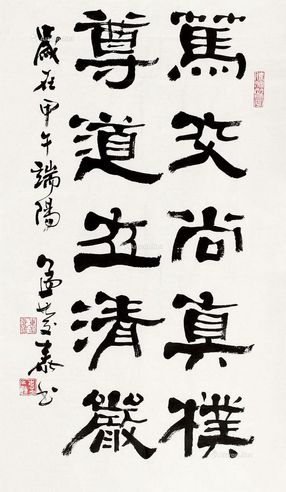 篤交尚真樸
尊道立清嚴
歲在甲午端陽 孟慶泰书